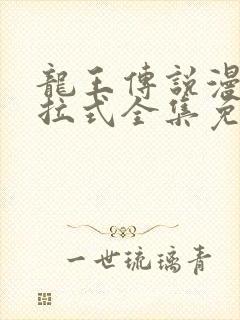 龍王傳說漫
拉式全集免
一世琉璃青